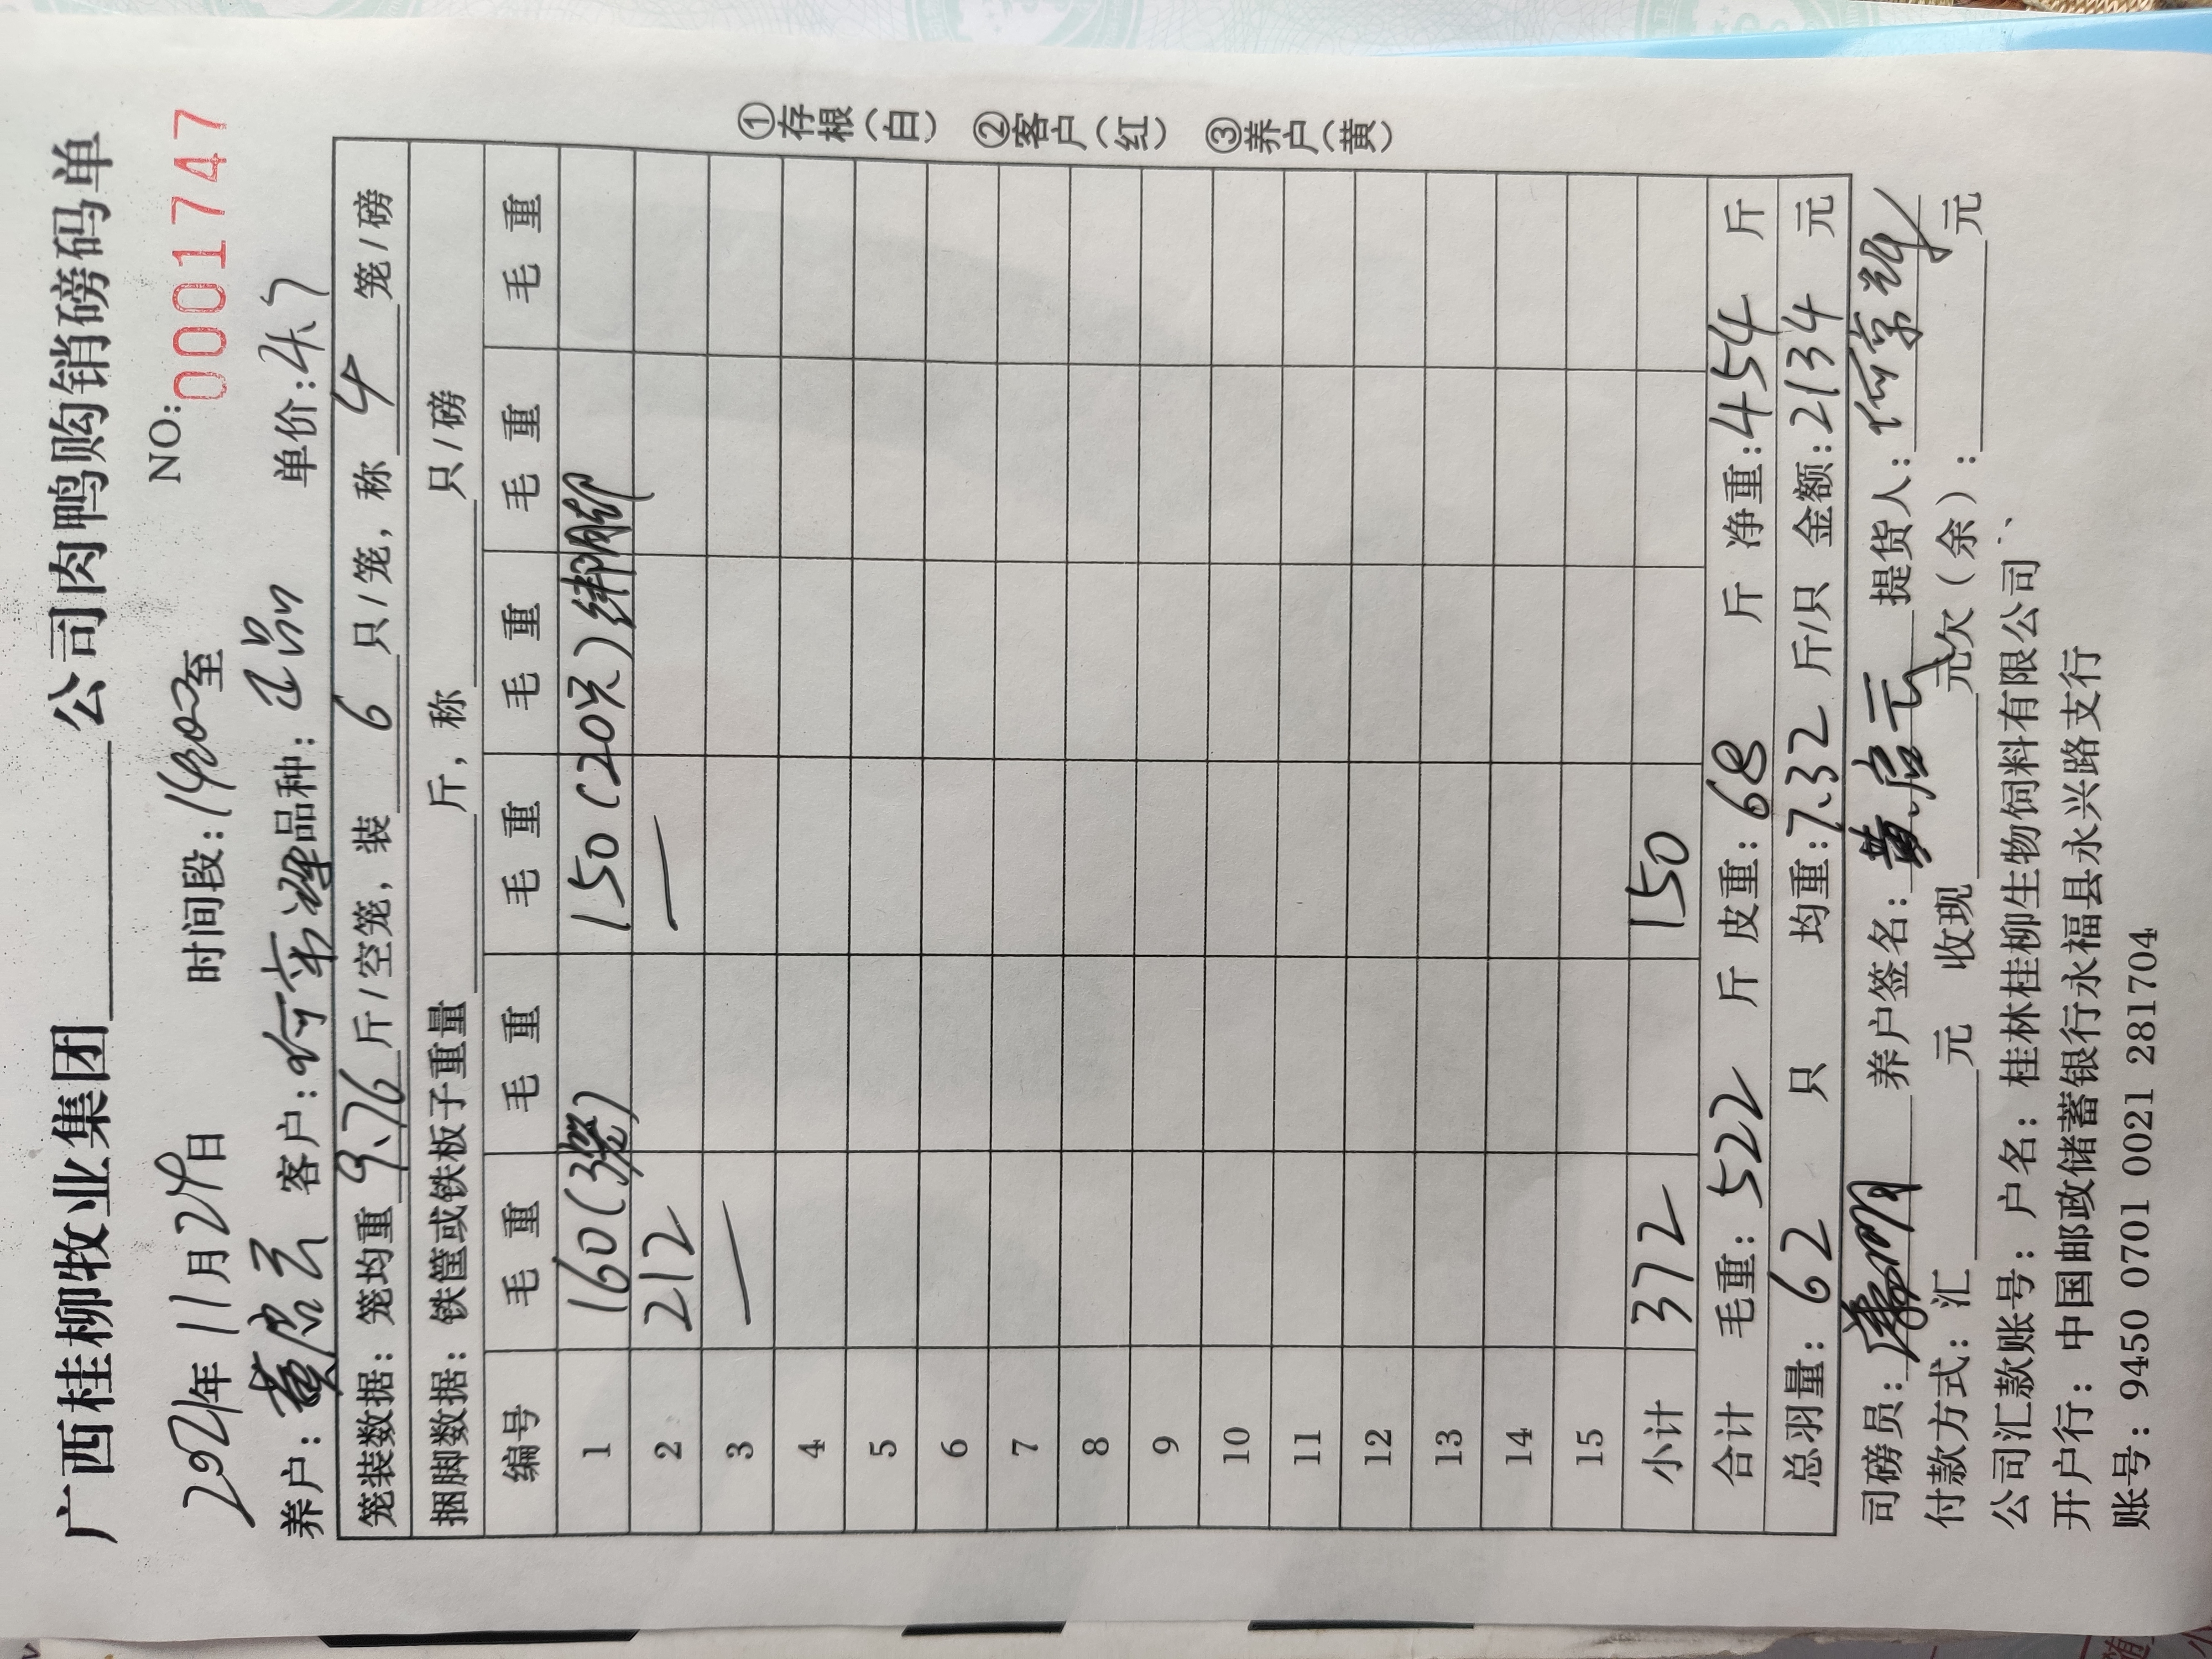 广西桂柳牧业集团________公司肉鸭购销磅码单
2021年11月29日 时间段:1400至 NO:0001747
养户:黄启云 客户:何京辉 品种:正品 单价:4.7
笼装数据:笼均重 9.76 斤/空笼,装 6 只/笼,称 4 笼/磅
捆脚数据:铁筐或铁板子重量____斤,称____只/磅
编号 毛重 毛重 毛重 毛重 毛重 毛重
1 160(3笼) 150(20只)绑脚
2 212 —
3 —
4
5
6
7
8
9
10
11
12
13
14
15
小计 372 150
合计 毛重:522 斤 皮重:68 斤 净重:454 斤
总羽量:62 只 均重:7.32 斤/只 金额:2134 元
司磅员: 养户签名:黄启云 提货人:何京辉
付款方式:汇____元 收现____元欠(余):____元
公司汇款账号:户名:桂林桂柳生物饲料有限公司
开户行:中国邮政储蓄银行永福县永兴路支行
账号:9450 0701 0021 281704
①存根(白) ②客户(红) ③养户(黄)